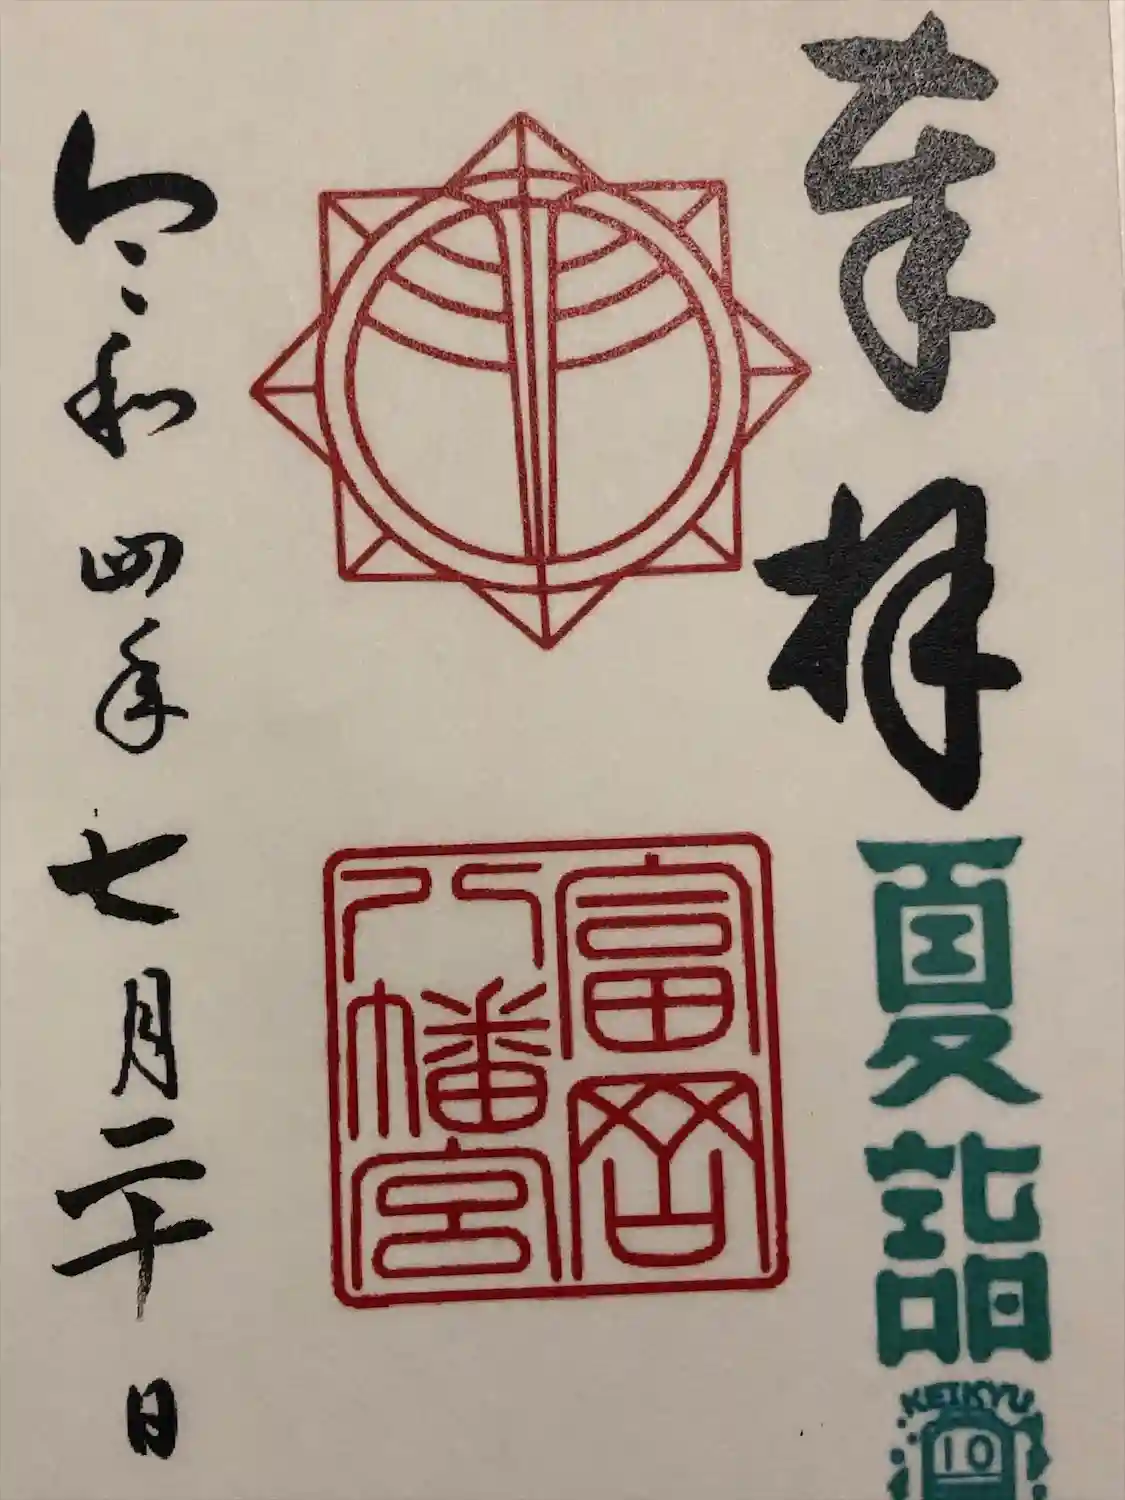 奉拝
夏詣
KEIKYU
10
富岡
八幡宮
令和四年七月二十日